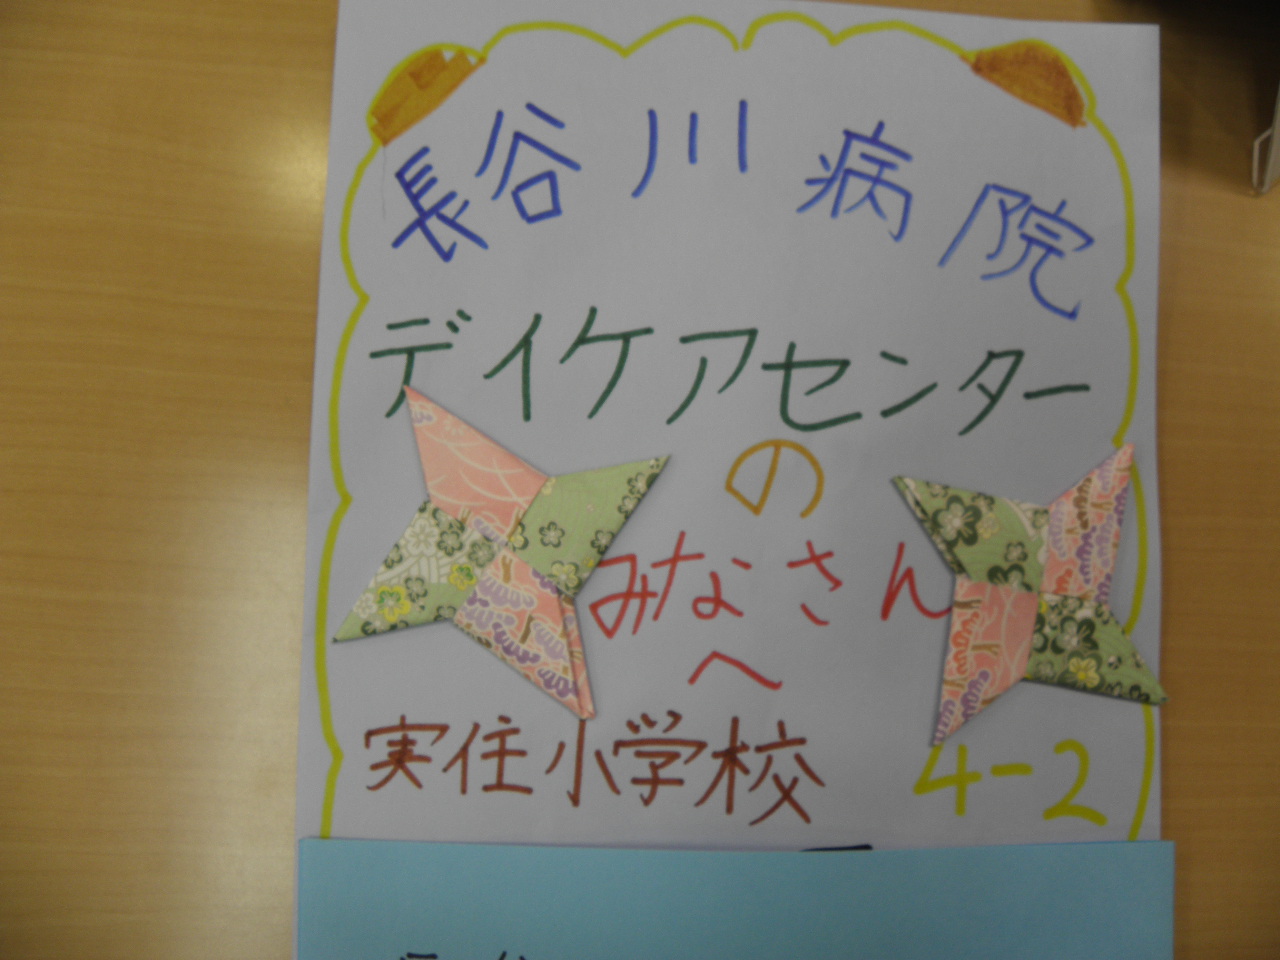 長谷川病院
デイケアセンター
の
みなさん
へ
実住小学校 4-2